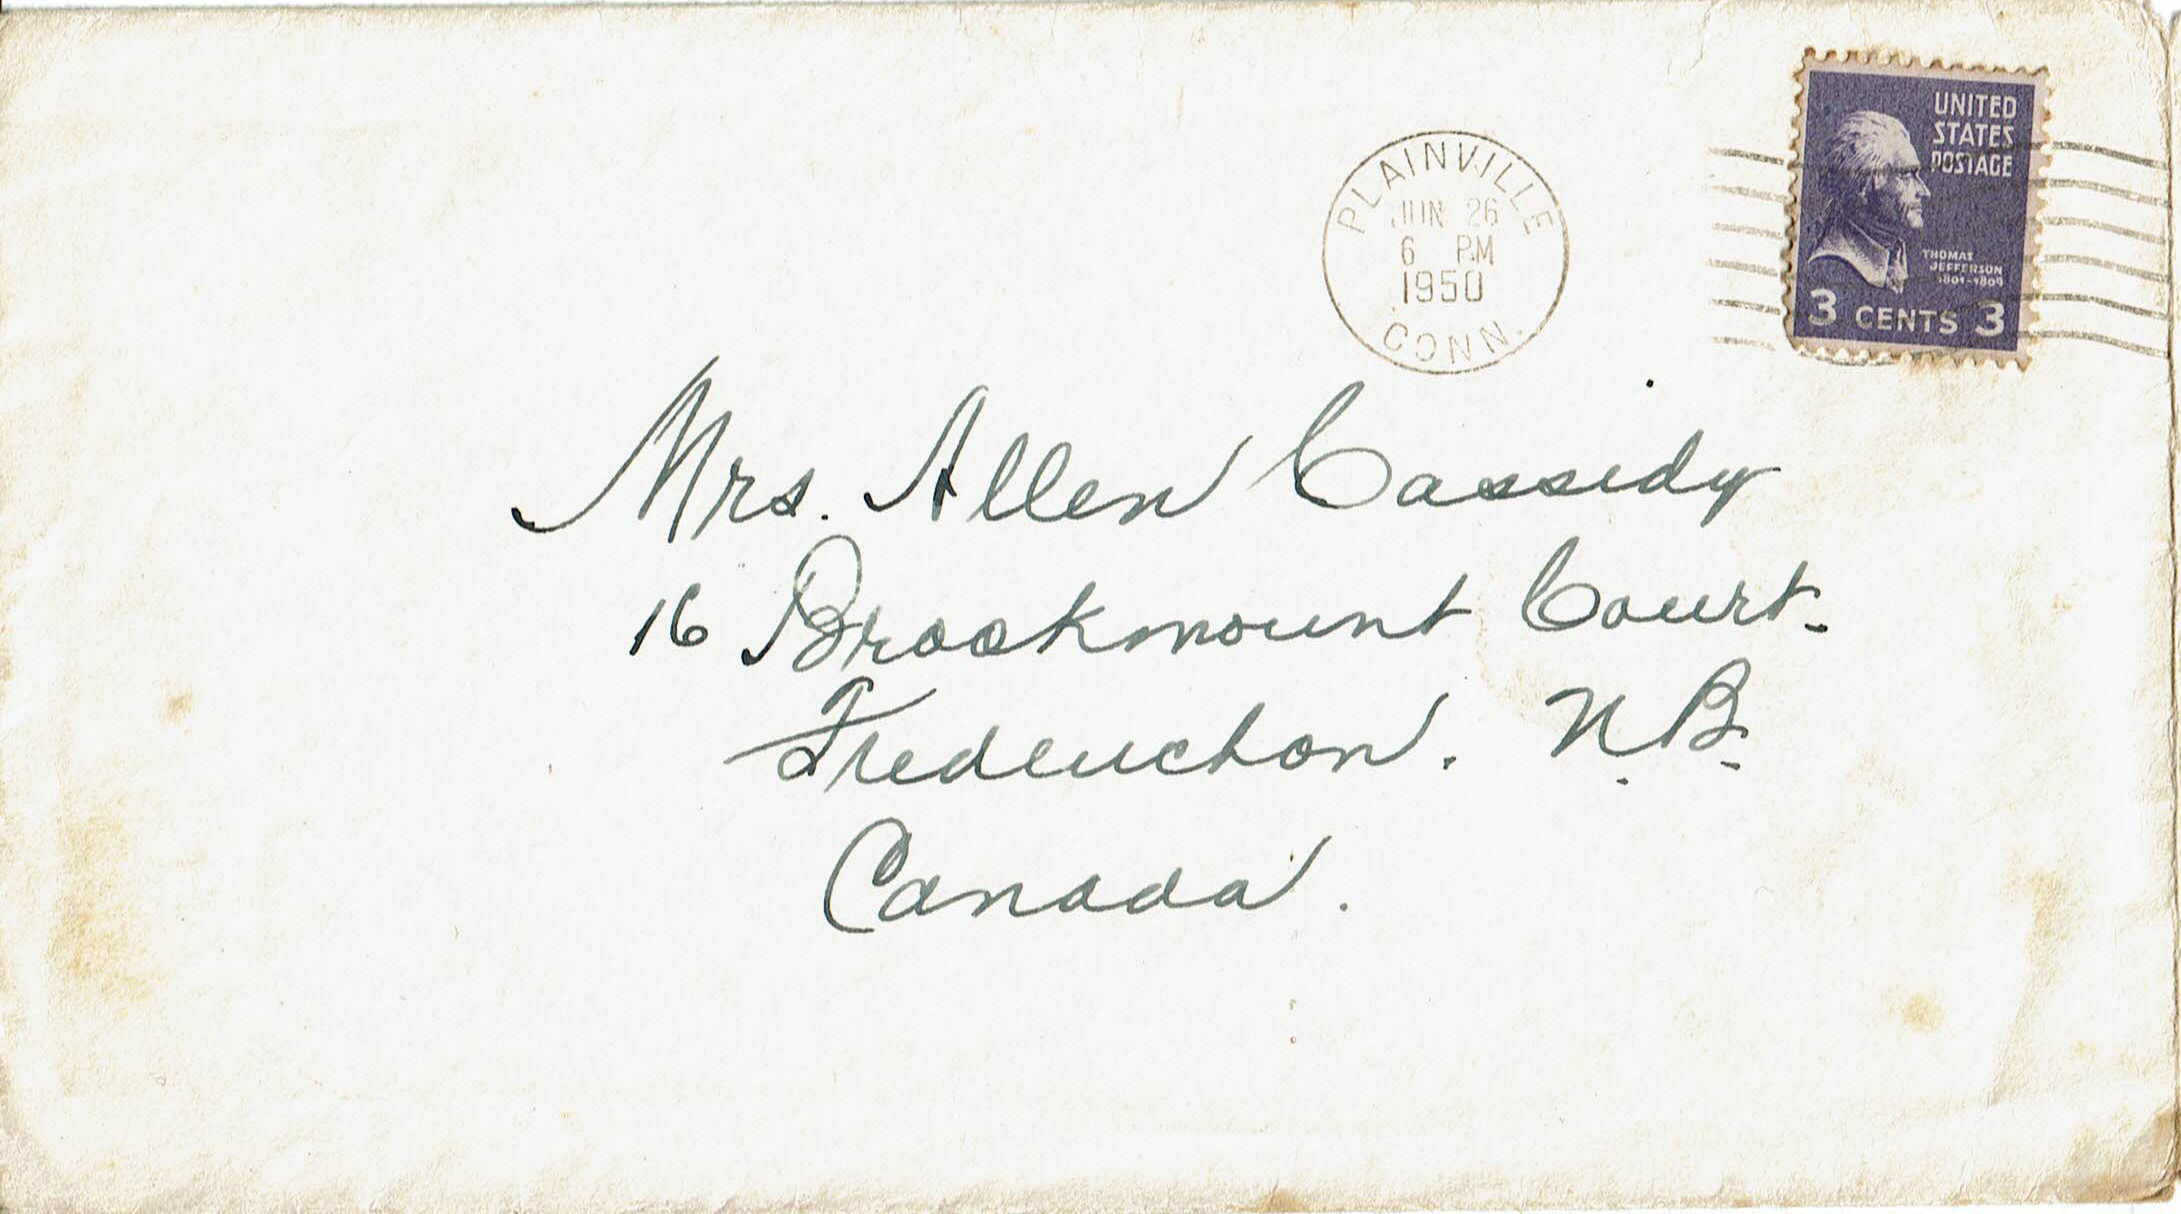 PLAINVILLE
JUN 26
6 PM
1950
CONN.
UNITED
STATES
POSTAGE
THOMAS
JEFFERSON
1801-1809
3 CENTS 3
Mrs. Allen Cassidy
16 Brookmount Court.
Fredericton. N.B.
Canada.